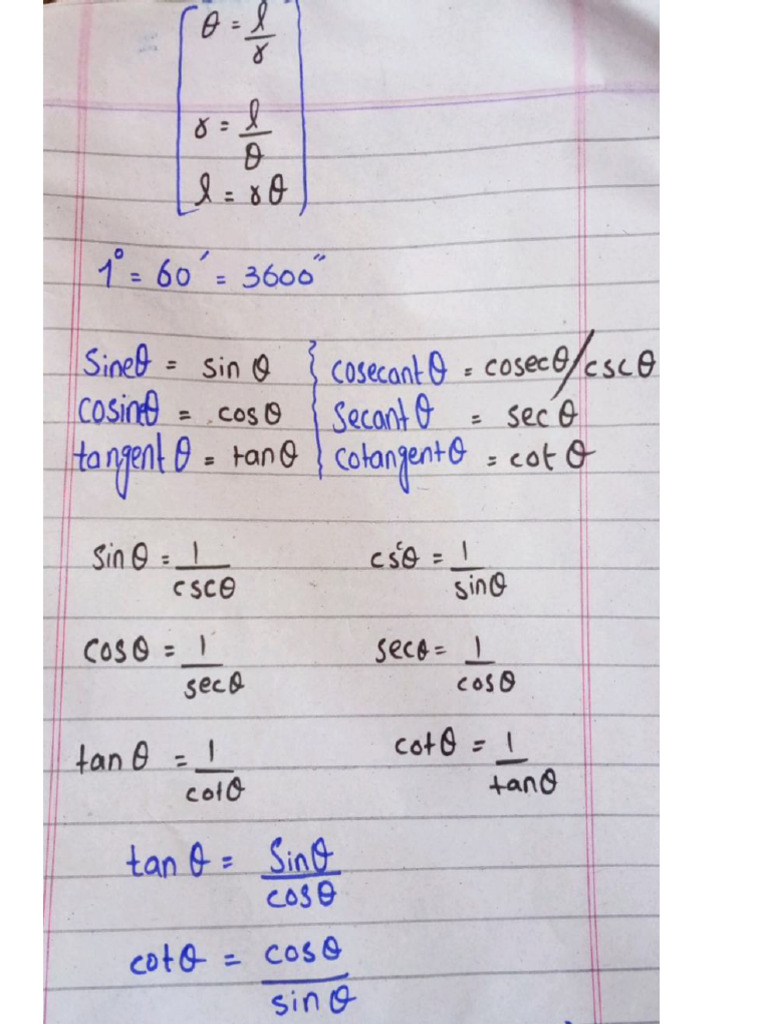 θ = l/r
r = l/θ
l = rθ
1° = 60′ = 3600″
Sineθ = sin θ } cosecant θ = cosecθ/cscθ
cosineθ = cosθ } Secant θ = sec θ
tangent θ = tanθ } cotangentθ = cot θ
sinθ = 1/cscθ cscθ = 1/sinθ
cosθ = 1/secθ secθ = 1/cosθ
tanθ = 1/cotθ cotθ = 1/tanθ
tan θ = Sinθ/cosθ
cotθ = cosθ/sinθ